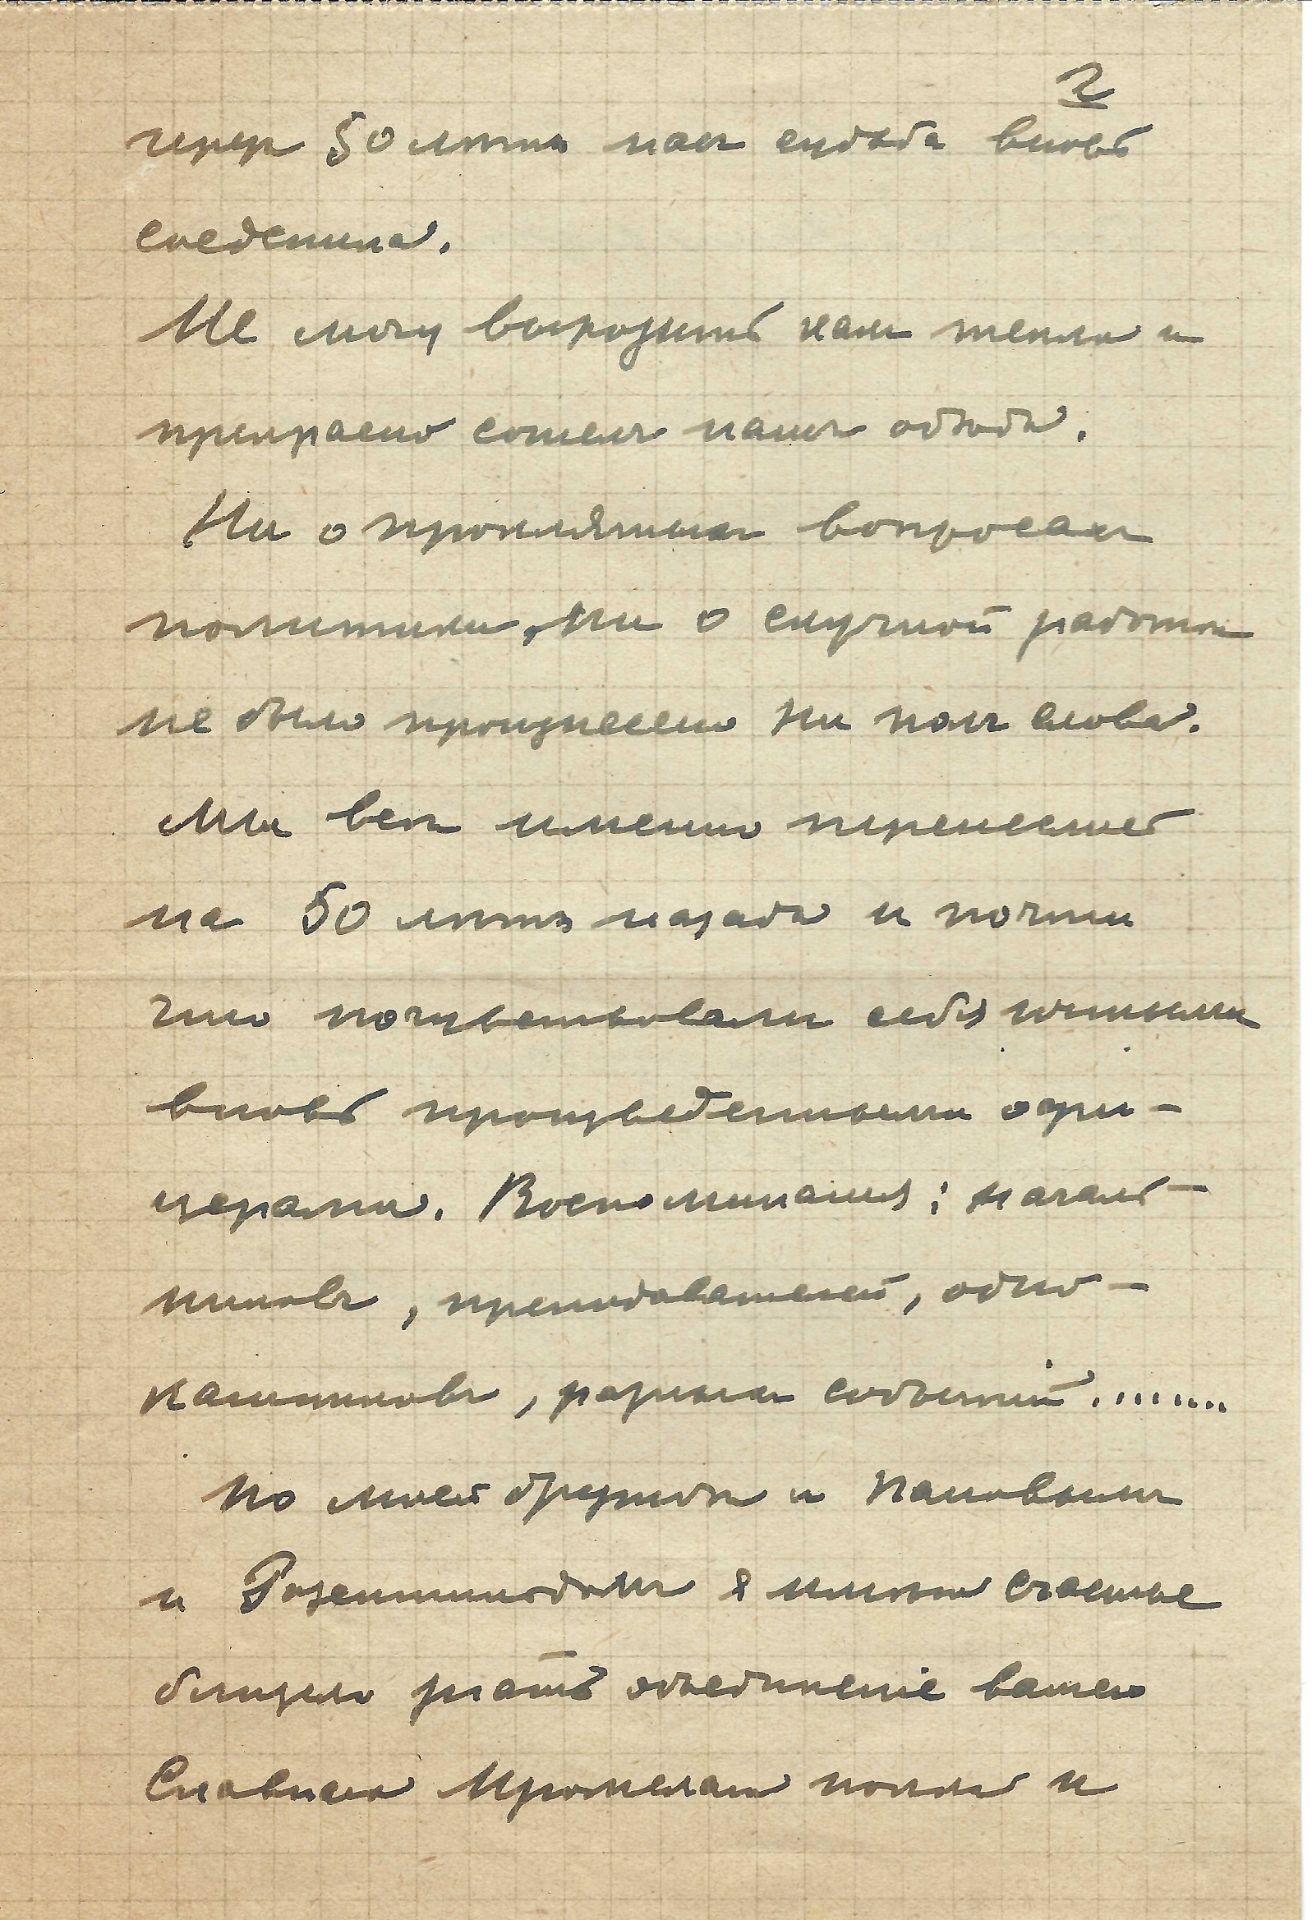 2
через 50 лѣтъ насъ судьба вновь
соединила.
Не могу выразить какъ тепло и
прекрасно сошелъ нашъ обѣдъ.
Ни о проклятыхъ вопросахъ
политики, ни о скучной работѣ
не было произнесено ни полъ слова.
Мы всѣ именно перенеслись
на 50 лѣтъ назадъ и почти
что почувствовали себя юными
вновь произведенными офи-
церами. Воспоминанія: началь-
никовъ, преподавателей, одно-
кашниковъ, разныхъ событій........
По моей дружбѣ и Пановымъ
и Розеншильдомъ я имѣлъ счастье
близко знать объединеніе вашего
Славнаго полка и